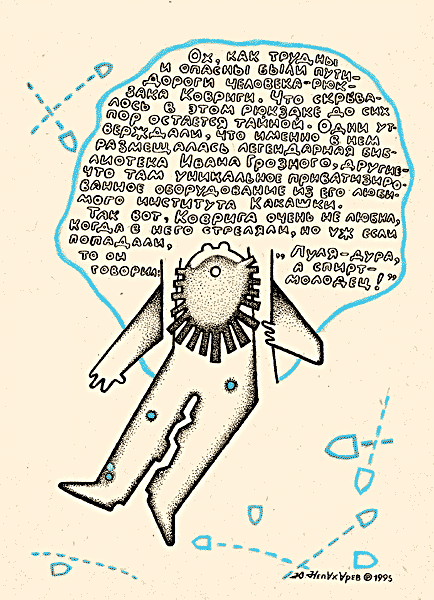 Ох, как трудны
и опасны были пути-
дороги человека-рюк-
зака Ковриги. Что скрыва-
лось в этом рюкзаке до сих
пор остается тайной. Одни ут-
верждали, что именно в нем
размещалась легендарная биб-
лиотека Ивана Грозного, другие-
что там уникальное приватизиро-
ванное оборудование из его люби-
мого института Какашки.
Так вот, Коврига очень не любил,
когда в него стреляли, но уж если
попадали,
то он
говорил:
„Пуля-дура,
а спирт-
молодец!”
© 1995